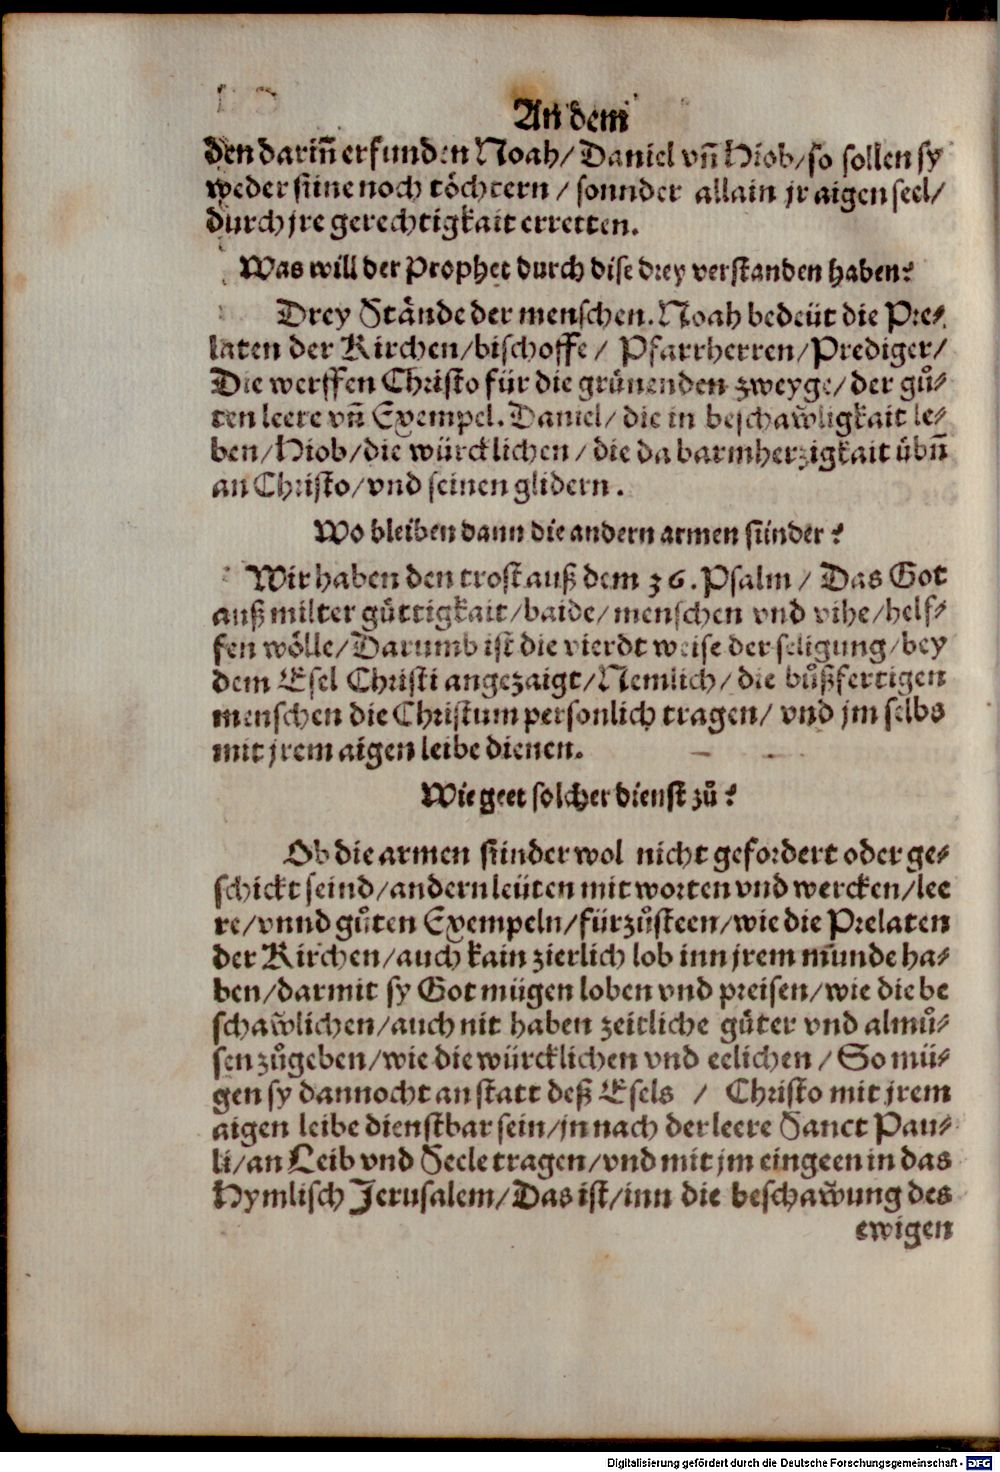 An dem
den dariñ erfunden Noah/ Daniel vñ Hiob/ so sollen sy
weder süne noch töchtern / sonnder allain jr aigen seel/
durch jre gerechtigkait erretten.
Was will der Prophet durch dise drey verstanden haben?
Drey Stände der menschen. Noah bedeüt die Pre-
laten der Kirchen/ bischoffe / Pfarrherren/ Prediger/
Die werffen Christo für die grünenden zweyge/ der gů-
ten leere vñ Exempel. Daniel/ die in beschaw̆ligkait le-
ben/ Hiob/ die würcklichen / die da barmherzigkait übñ
an Christo/ vnd seinen glidern.
Wo bleiben dann die andern armen sünder?
Wir haben den trost auß dem 36. Psalm / Das Got
auß milter güttigkait/ baide/ menschen vnd vihe/ helf-
fen wölle/ Darumb ist die vierdt weise der seligung/ bey
dem Esel Christi angezaigt/ Nemlich/ die bůßfertigen
menschen die Christum personlich tragen/ vnd jm selbs
mit jrem aigen leibe dienen.
Wie geet solcher dienst zů?
Ob die armen sünder wol nicht gefordert oder ge-
schickt seind/ andern leüten mit worten vnd wercken/ lee
re/ vnnd gůten Exempeln/ fürzůsteen/ wie die Prelaten
der Kirchen/ auch kain zierlich lob inn jrem munde ha-
ben/ darmit sy Got mügen loben vnd preisen/ wie die be
schaw̆lichen/ auch nit haben zeitliche güter vnd almů-
sen zůgeben/ wie die würcklichen vnd eelichen / So mü-
gen sy dannocht an statt deß Esels / Christo mit jrem
aigen leibe dienstbar sein/ jn nach der leere Sanct Pau-
li/ an Leib vnd Seele tragen/ vnd mit jm eingeen in das
Hymlisch Jerusalem/ Das ist/ inn die beschaw̆ung des
ewigen
Digitalisierung gefördert durch die Deutsche Forschungsgemeinschaft - DFG